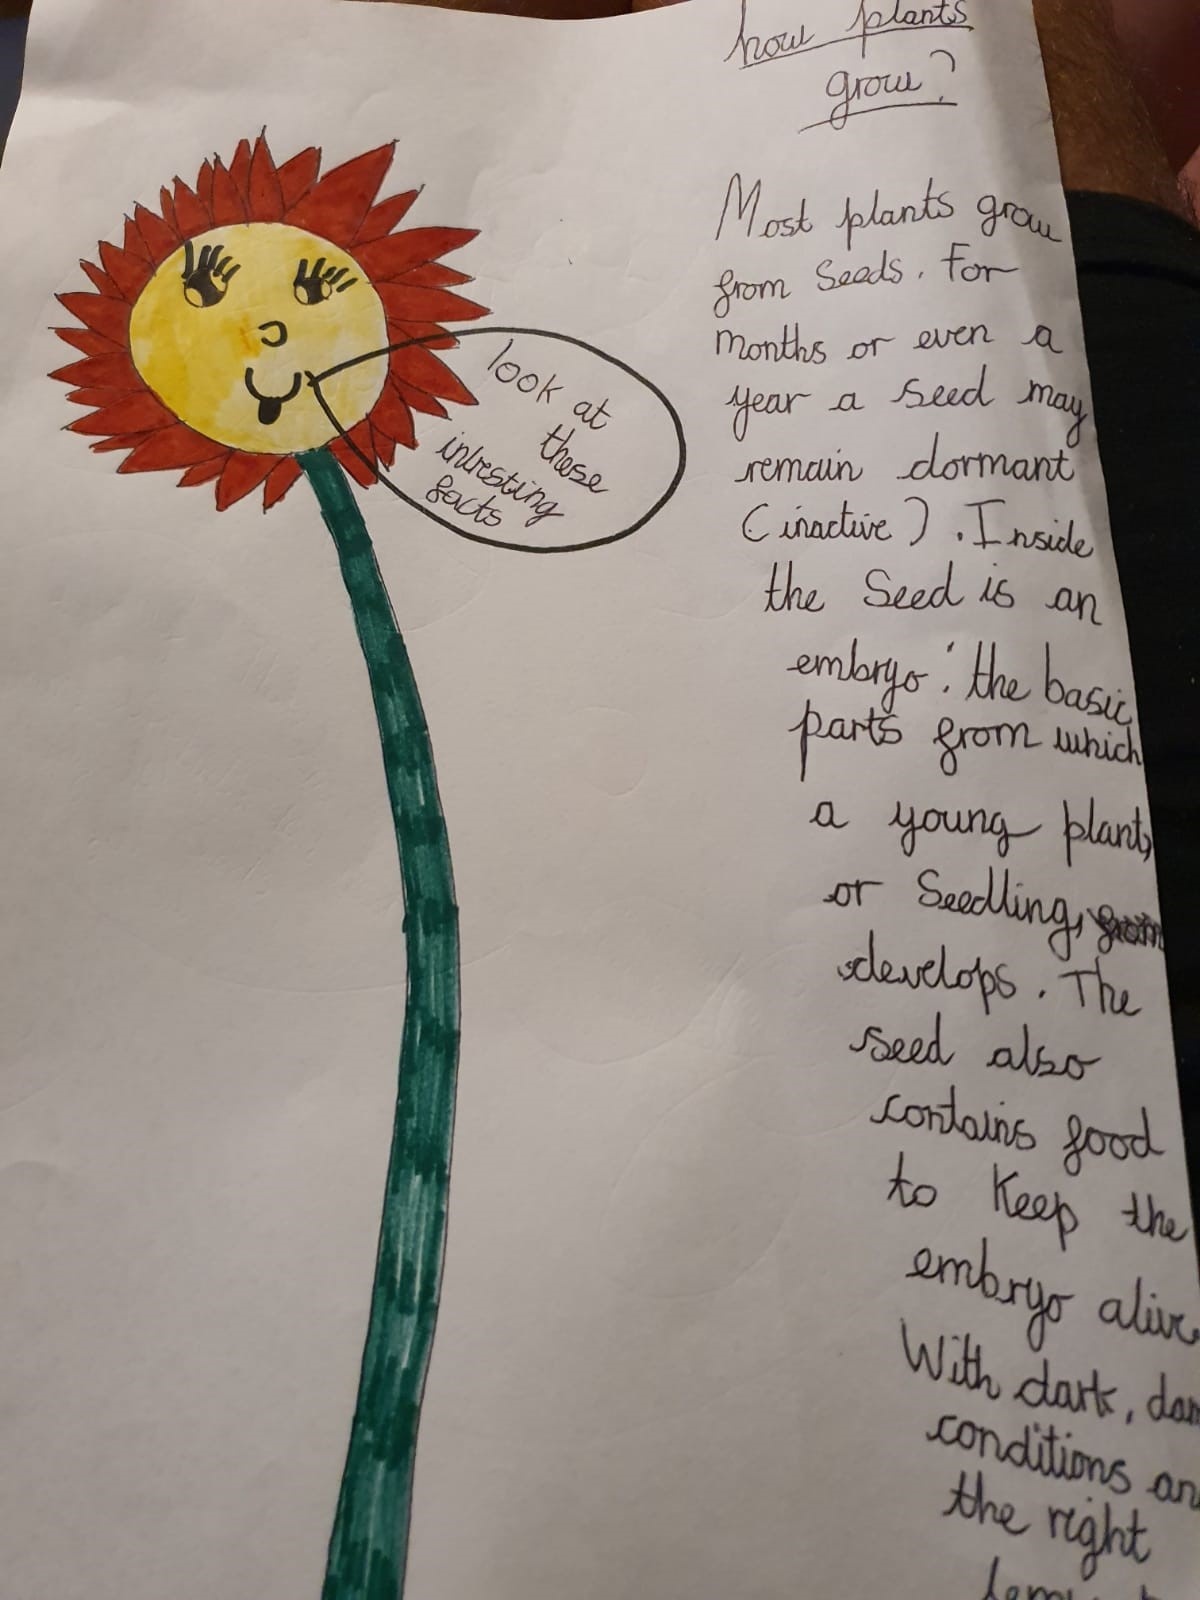 how plants
grow?
look at
these
intresting
facts
Most plants grow
from Seeds. For
months or even a
year a seed may
remain dormant
(inactive). Inside
the Seed is an
embryo: the basic
parts from which
a young plant,
or Seedling,
develops. The
seed also
contains food
to Keep the
embryo alive.
With dark,
conditions
the right